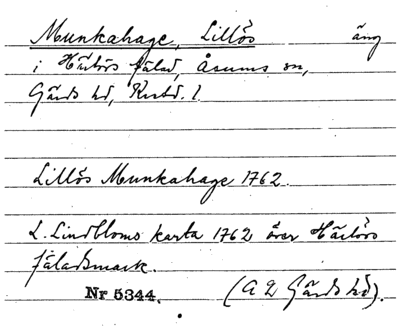 Munkahage, Lillös äng
i Härlövs fälad, Åsums sn,
Gärds hd, Krstd. l.
Lillös Munkahage 1762.
L. Lindbloms karta 1762 över Härlövs
fäladsmark.
Nr 5344. (A 2 Gärds hd).